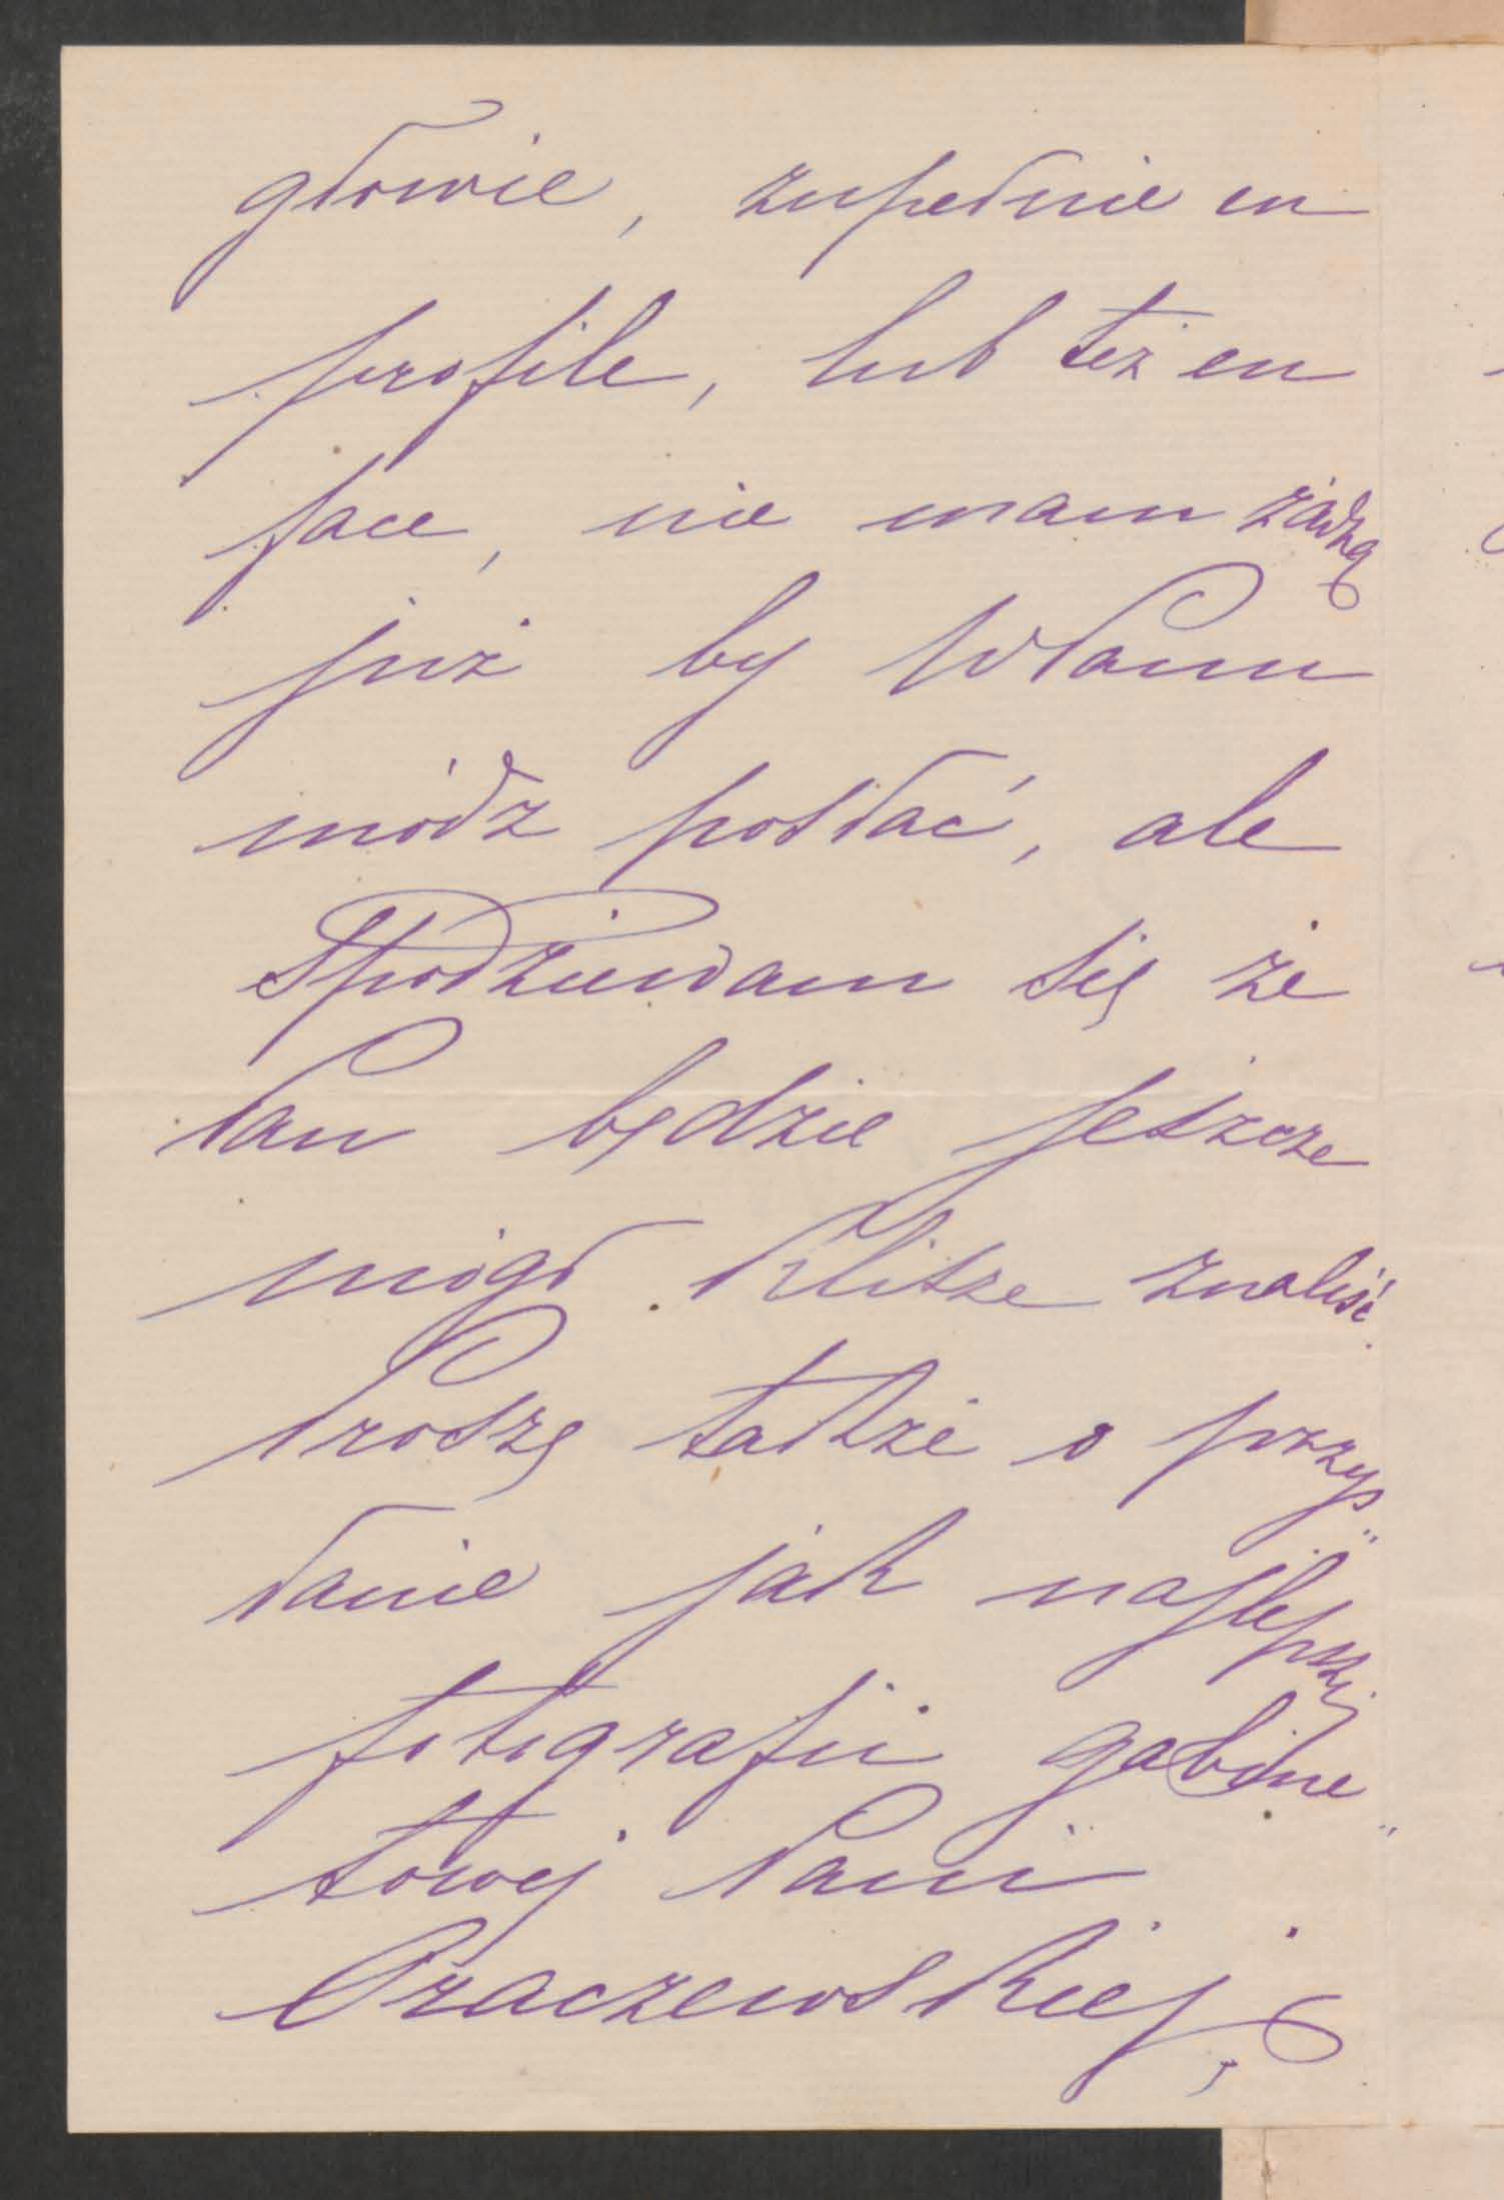 głowie, zupełnie en
profile, lub też en
face, nie mam żadną
już by WPanu
módz posłać, ale
spodziewam się że
Pan będzie jeszcze
mógł klisze znaliść.
Proszę także o przys"
łanie jak najlepszej
fotografii gabine"
towej Pani
Oraczewskiej,